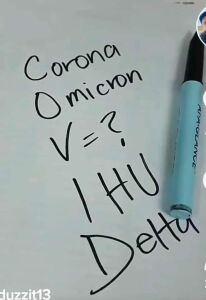 Corona
Omicron
V = ?
I HU
Delta
duzzit13